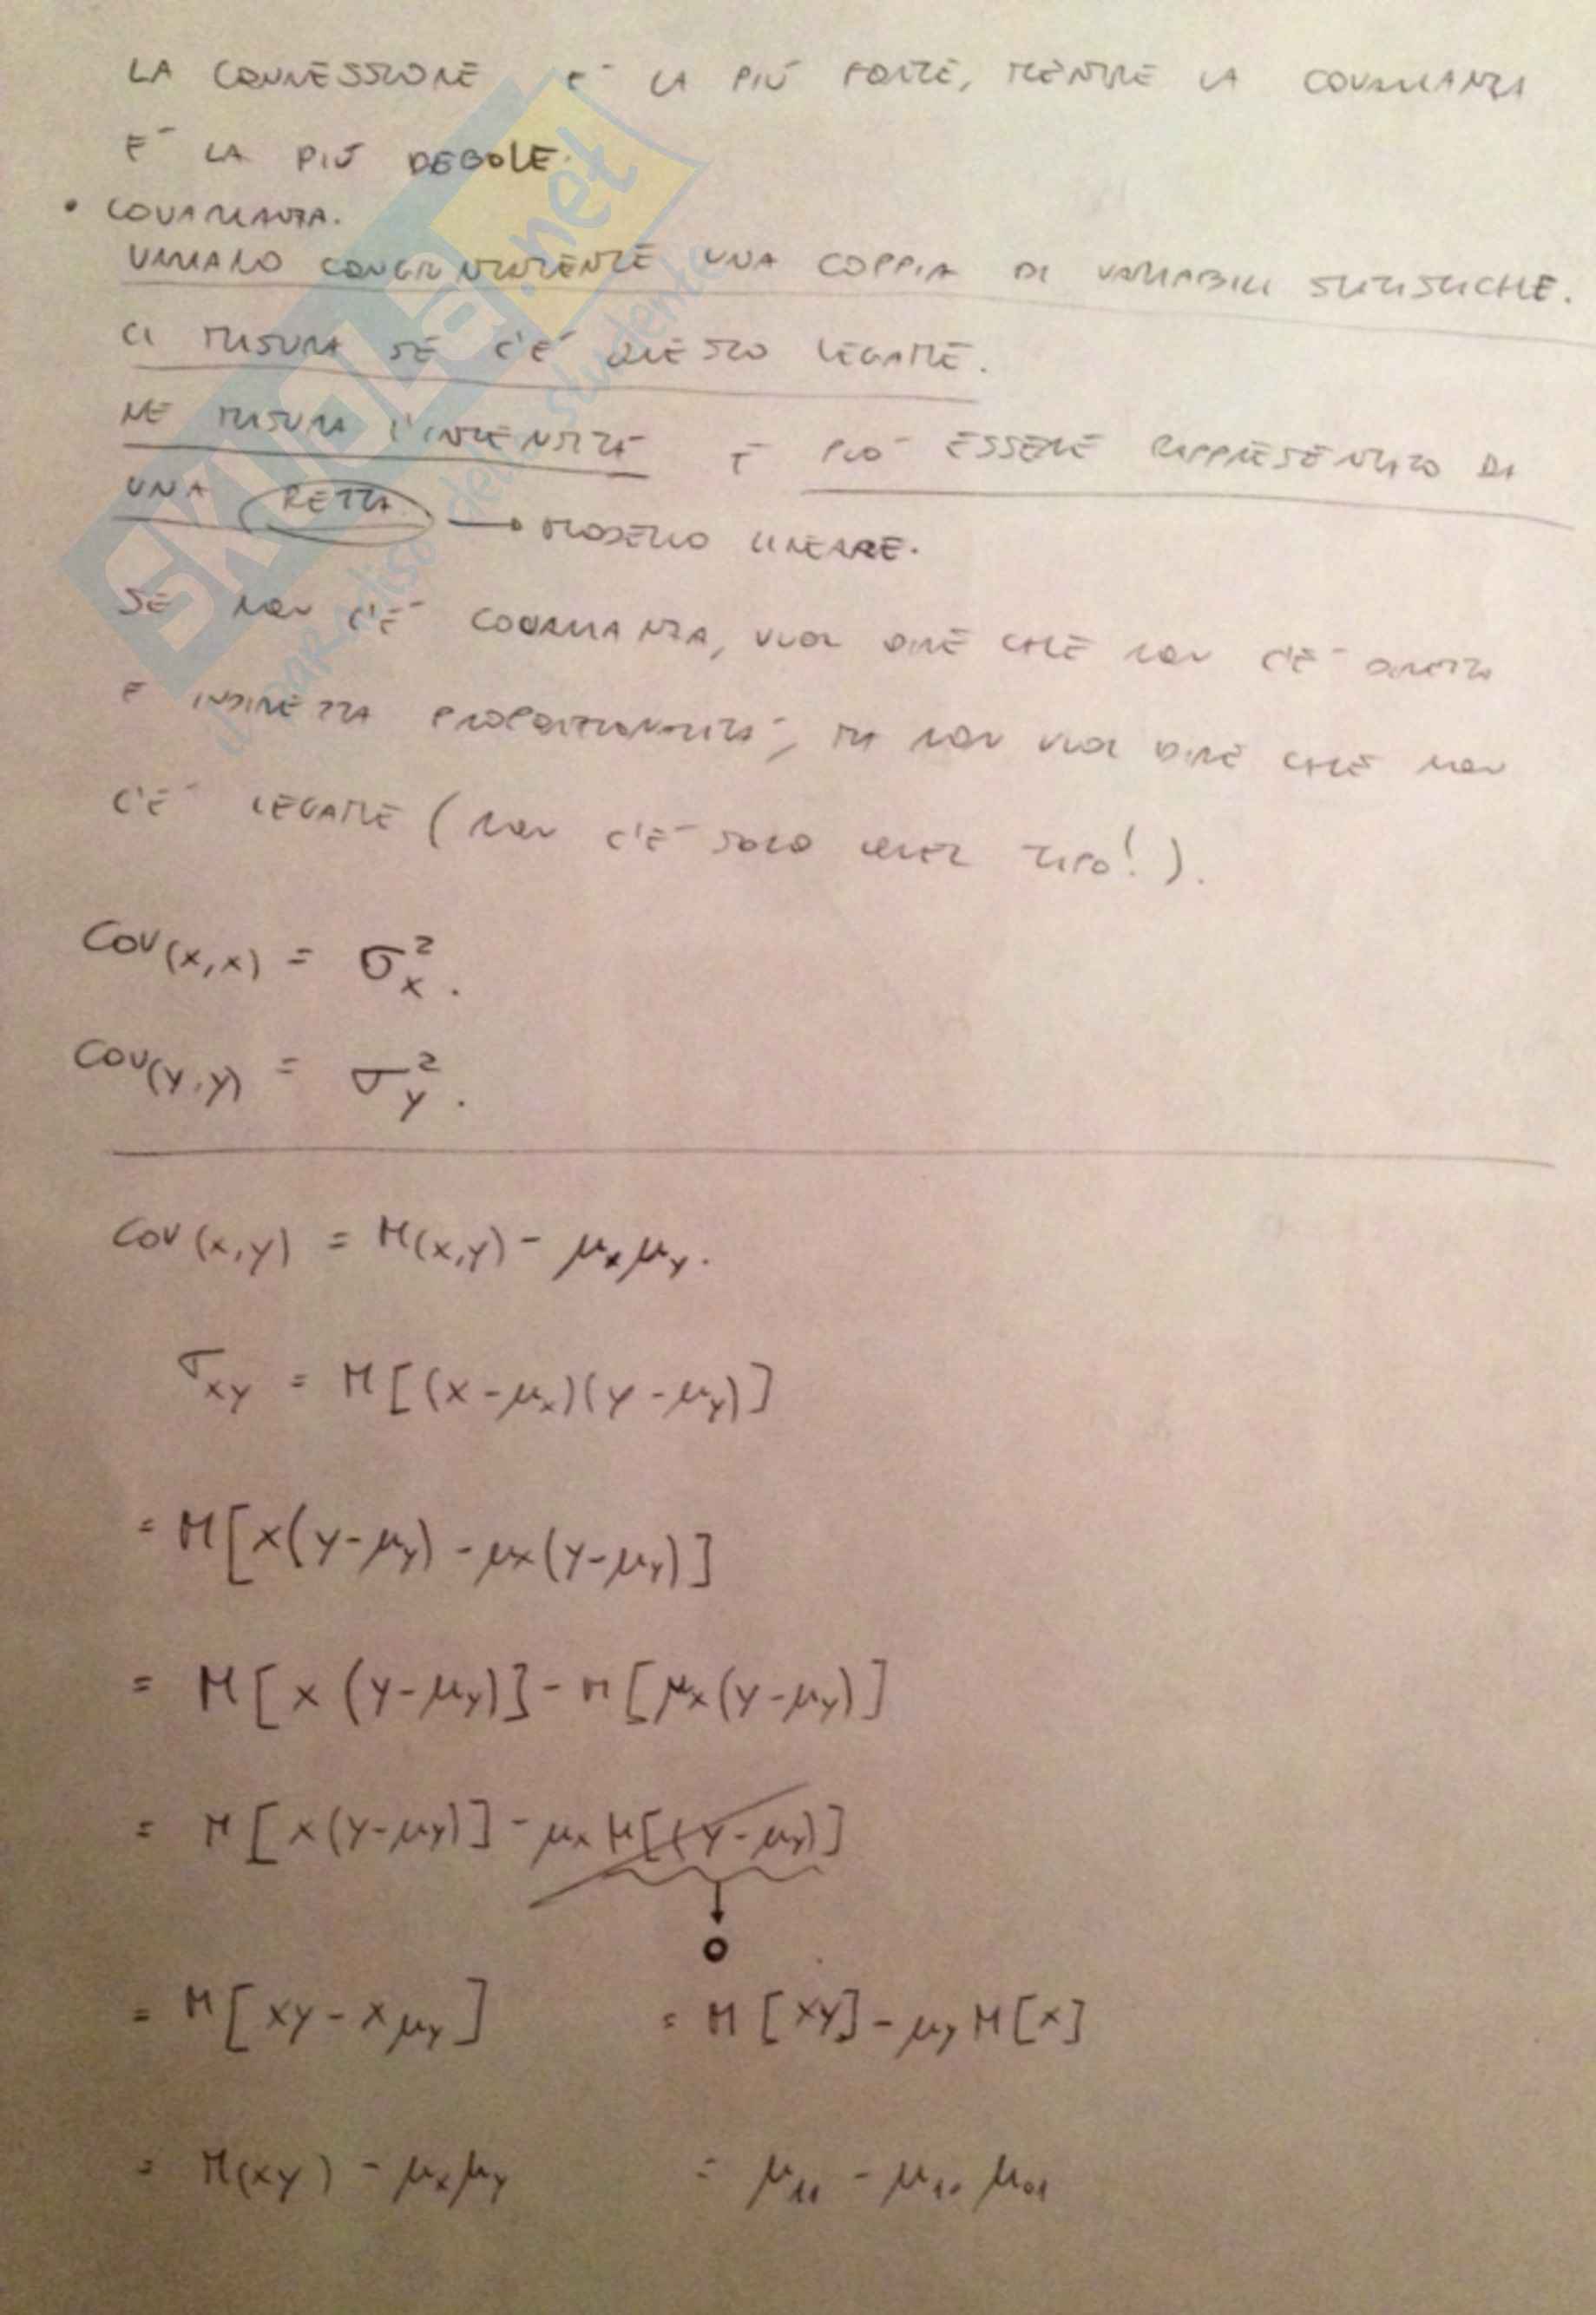 LA CONNESSIONE E' LA PIÙ FORTE, MENTRE LA COVARIANZA
E' LA PIÙ DEBOLE.
• COVARIANZA.
VARIANO CONGIUNTAMENTE UNA COPPIA DI VARIABILI STATISTICHE.
CI MISURA SE C'E' QUESTO LEGAME.
NE MISURA L'INTENSITÀ E PUO' ESSERE RAPPRESENTATO DA
UNA RETTA → MODELLO LINEARE.
SE NON C'E' COVARIANZA, VUOL DIRE CHE NON C'E' DIRETTA
E INDIRETTA PROPORZIONALITÀ, MA NON VUOL DIRE CHE NON
C'E' LEGAME (NON C'E' SOLO QUEL TIPO!).
COV(x,x) = σ²ₓ.
COV(y,y) = σ²_y.
COV(x,y) = M(x,y) - μₓμ_y.
σ_xy = M[(x-μₓ)(y-μ_y)]
= M[x(y-μ_y) - μₓ(y-μ_y)]
= M[x(y-μ_y)] - M[μₓ(y-μ_y)]
= M[x(y-μ_y)] - μₓ M[(y-μ_y)]
↓
0
= M[xy - xμ_y] = M[xy] - μ_y M[x]
= M(xy) - μₓμ_y = μ₁₁ - μ₁₀ μ₀₁
SKUOLA.net
il paradiso dello studente